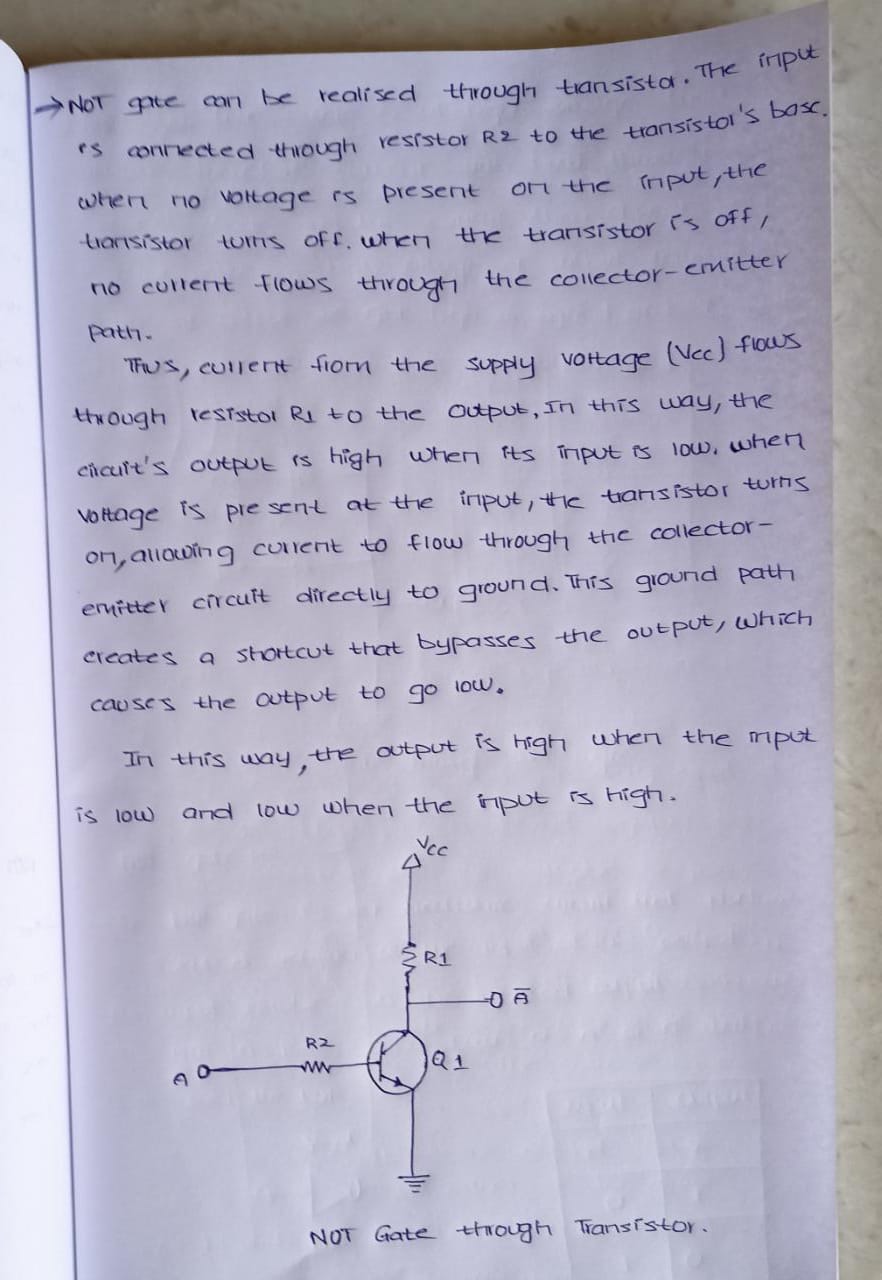 → NOT gate can be realised through transistor. The input
is connected through resistor R2 to the transistor's base.
when no voltage is present on the input, the
transistor turns off. when the transistor is off,
no current flows through the collector-emitter
path.
Thus, current from the supply voltage (Vcc) flows
through resistor R1 to the output, In this way, the
circuit's output is high when its input is low. when
voltage is present at the input, the transistor turns
on, allowing current to flow through the collector-
emitter circuit directly to ground. This ground path
creates a shortcut that bypasses the output, which
causes the output to go low.
In this way, the output is high when the input
is low and low when the input is high.
Vcc
R1
Ā
R2
Q1
A
NOT Gate through Transistor.